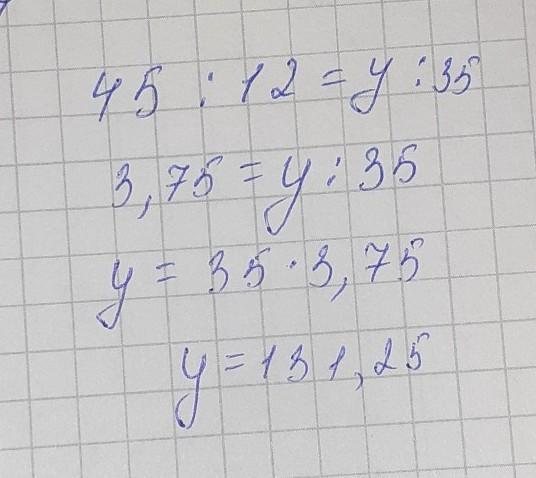 45 : 12 = y : 35
3,75 = y : 35
y = 35 · 3,75
y = 131,25